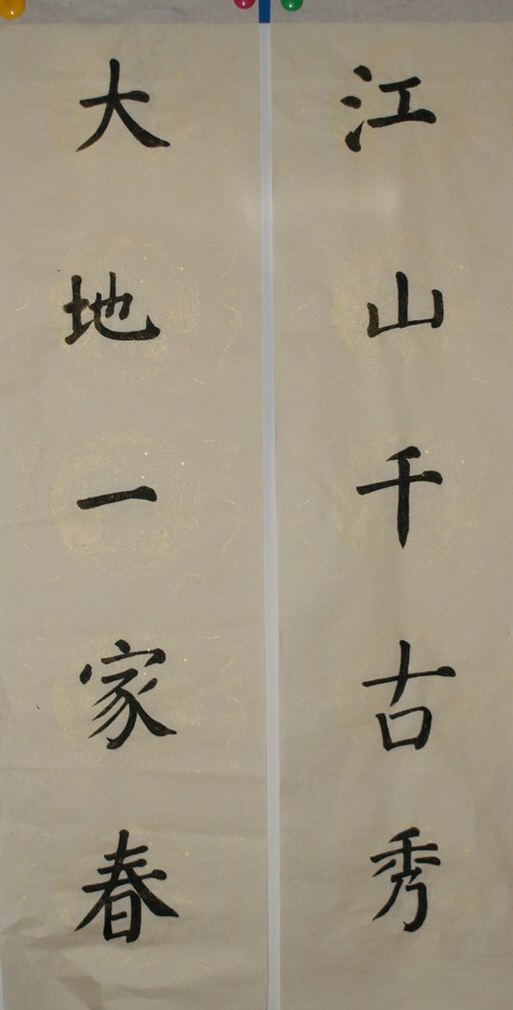 江山千古秀
大地一家春